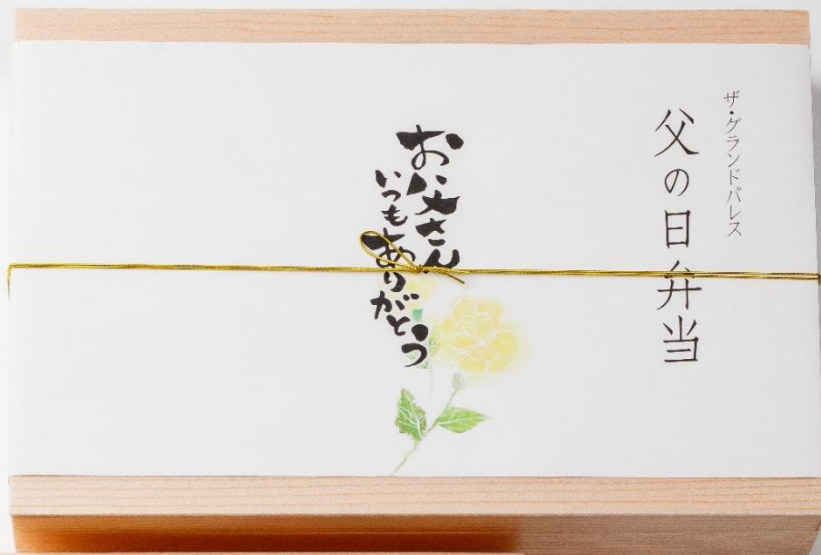 ザ・グランドパレス
父の日弁当
お父さん
いつもありがとう